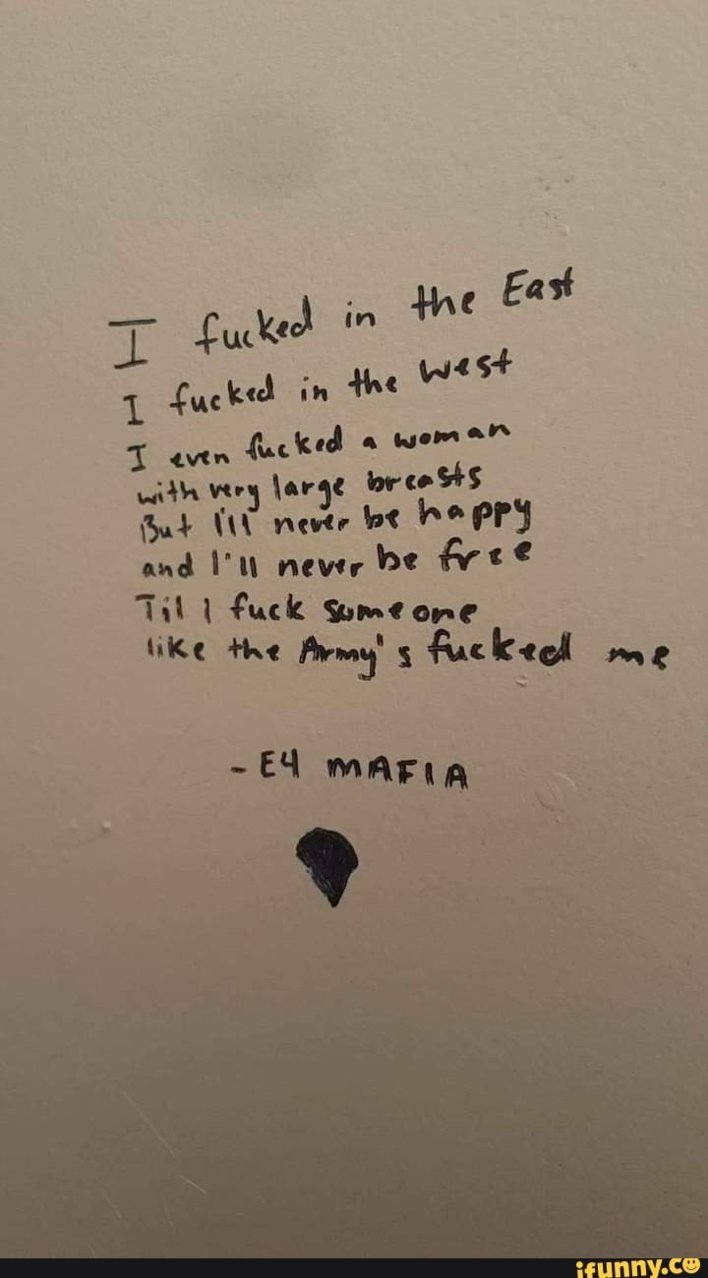 I fucked in the East
I fucked in the West
I even fucked a woman
with very large breasts
But I'll never be happy
and I'll never be free
Til I fuck someone
like the Army's fucked me
- E4 MAFIA
ifunny.co